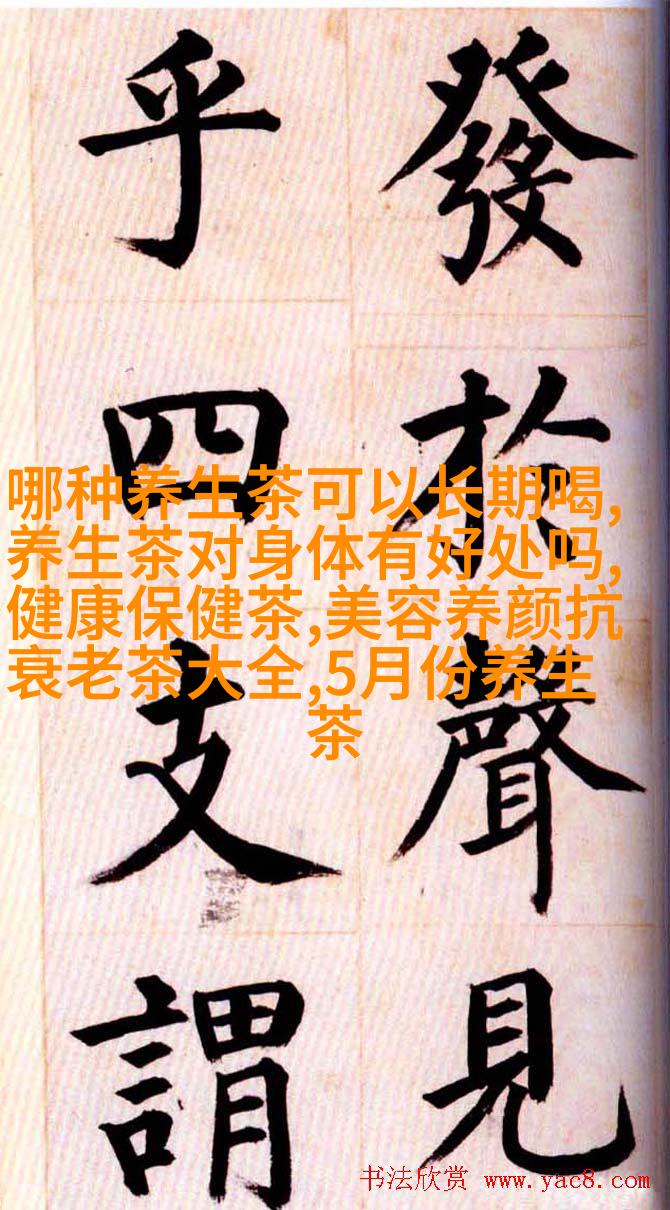 發於聲見
乎四支謂
哪种养生茶可以长期喝,
养生茶对身体有好处吗,
健康保健茶,美容养颜抗
衰老茶大全,5月份养生
茶
书法欣赏 www.yac8.com